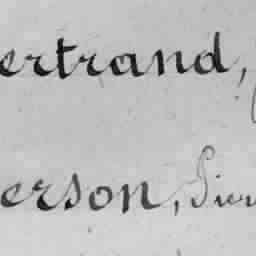 ertrand,
erson, Sieu